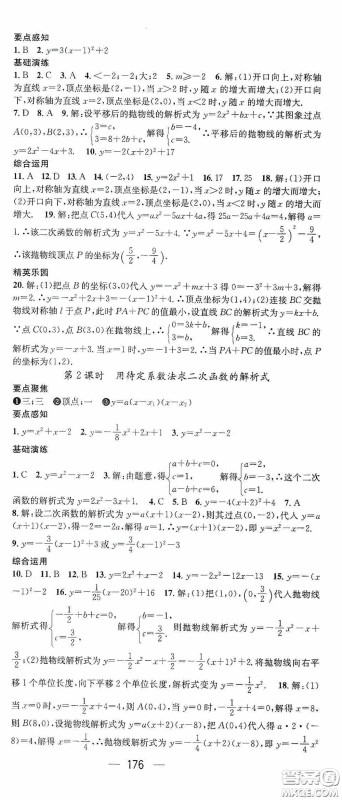 要点感知
1. B 2. y=3(x-1)²+2
基础演练
1. B 2. C 3. A 4. <-2;-2;大;2 5. m≥-2 6. 解:(1)开口向上,对称轴
为直线x=2,顶点坐标是(2,-1),当x>2时,y随x的增大而增大;(2)开口向
下,对称轴为直线x=2,顶点坐标是(2,0),当x<2时,y随x的增大而增大.
7. D 8. A 9. 解:设平移后的抛物线的解析式为y=2x²+bx+c,∵其图象过点
A(0,3),B(2,3),∴{3=c, 3=8+2b+c, 解得{b=-4, c=3. ∴平移后的抛物线的解析式为
y=2x²-4x+3. 10. y=-2(x+2)²+17
综合运用
11. A 12. D 13. (-2,4) 15. y=2x²+1 16. 17 17. 25 18. 解:(1)开口
向上,对称轴为直线x=2,顶点坐标是
大而增大. 19. 解:把点C(5,4)代入y=ax²-5ax+4a,得25a-25a+4a=4,解得a=
1.∴该二次函数的解析式为y=x²-5x+4.∵y=x²-5x+4=(x-5/2)²-9/4,
∴该抛物线顶点P的坐标为(5/2,-9/4).
精英乐园
20. 解:(1)把点B的坐标(3,0)代入y=-x²+mx+3得0=-3²+3m+3,解得m
=2.∴y=-x²+2x+3=-(x-1)²+4.∴顶点坐标为(1,4).(2)连接BC交抛
物线对称轴l于点P,此时PA+PC的值最小,设直线BC的解析式为y=kx+b.
∵点C(0,3),点B(3,0),∴{0=3k+b, 3=b, 解得{k=-1, b=3. ∴直线BC的解
析式为y=-x+3.当x=1时,y=-1+3=2,∴当PA+PC的值最小时,点P
的坐标为(1,2).
第2课时 用待定系数法求二次函数的解析式
要点聚焦
❶三;三 ❷顶点;一 ❸y=a(x-x₁)(x-x₂)
要点感知
1. y=x²+x-2 2. y=-1/8x²+1/2x+4
基础演练
1. C 2. y=x²-x-2 3. 解:由题意,得{a+b+c=0, a-b+c=6, c=1, 解得{a=2, b=-3, c=1. ∴这个二次
函数的解析式为y=2x²-3x+1. 4. C 5. B 6. y=-4(x+2)²+4 7. A
8. 解:设二次函数的解析式为y=a(x+1)(x-2),则其过点(0,-2),代入y=a
(x+1)(x-2),得-2=-2a,解得a=1.∴y=(x+1)(x-2),即y=x²-x-2.
9. y=-3/4(x-1)²+3或y=-3/4(x+1)²-3
综合运用
10. D 11. B 12. D 13. y=2x²+x-2 14. y=-2x²-12x-13 15. y=-(x
-1)²-2 16. y=-1/25(x-20)²+16 17. 解:(1)把(1,0),(0,3/2)代入抛物线
解析式得{-1/2+b+c=0, c=3/2, 解得{b=-1, c=3/2. 则抛物线解析式为y=-1/2x²-x+
3/2;(2)抛物线解析式为y=-1/2x²-x+3/2=-1/2(x+1)²+2,将抛物线向右平
移1个单位长度,向下平移2个单位长度,解析式变为y=-1/2x². 18. 解:(1)
∵y=-1/2x+4,∴当x=0时,y=4,则A(0,4),当y=0时,0=-1/2x+4,解得x=8,
则B(8,0),设抛物线解析式为y=a(x+2)(x-8),把A(0,4)代入得a·2·(-
8)=4,解得a=-1/4,∴抛物线解析式为y=-1/4(x+2)(x-8),即y=-1/4x²+
176